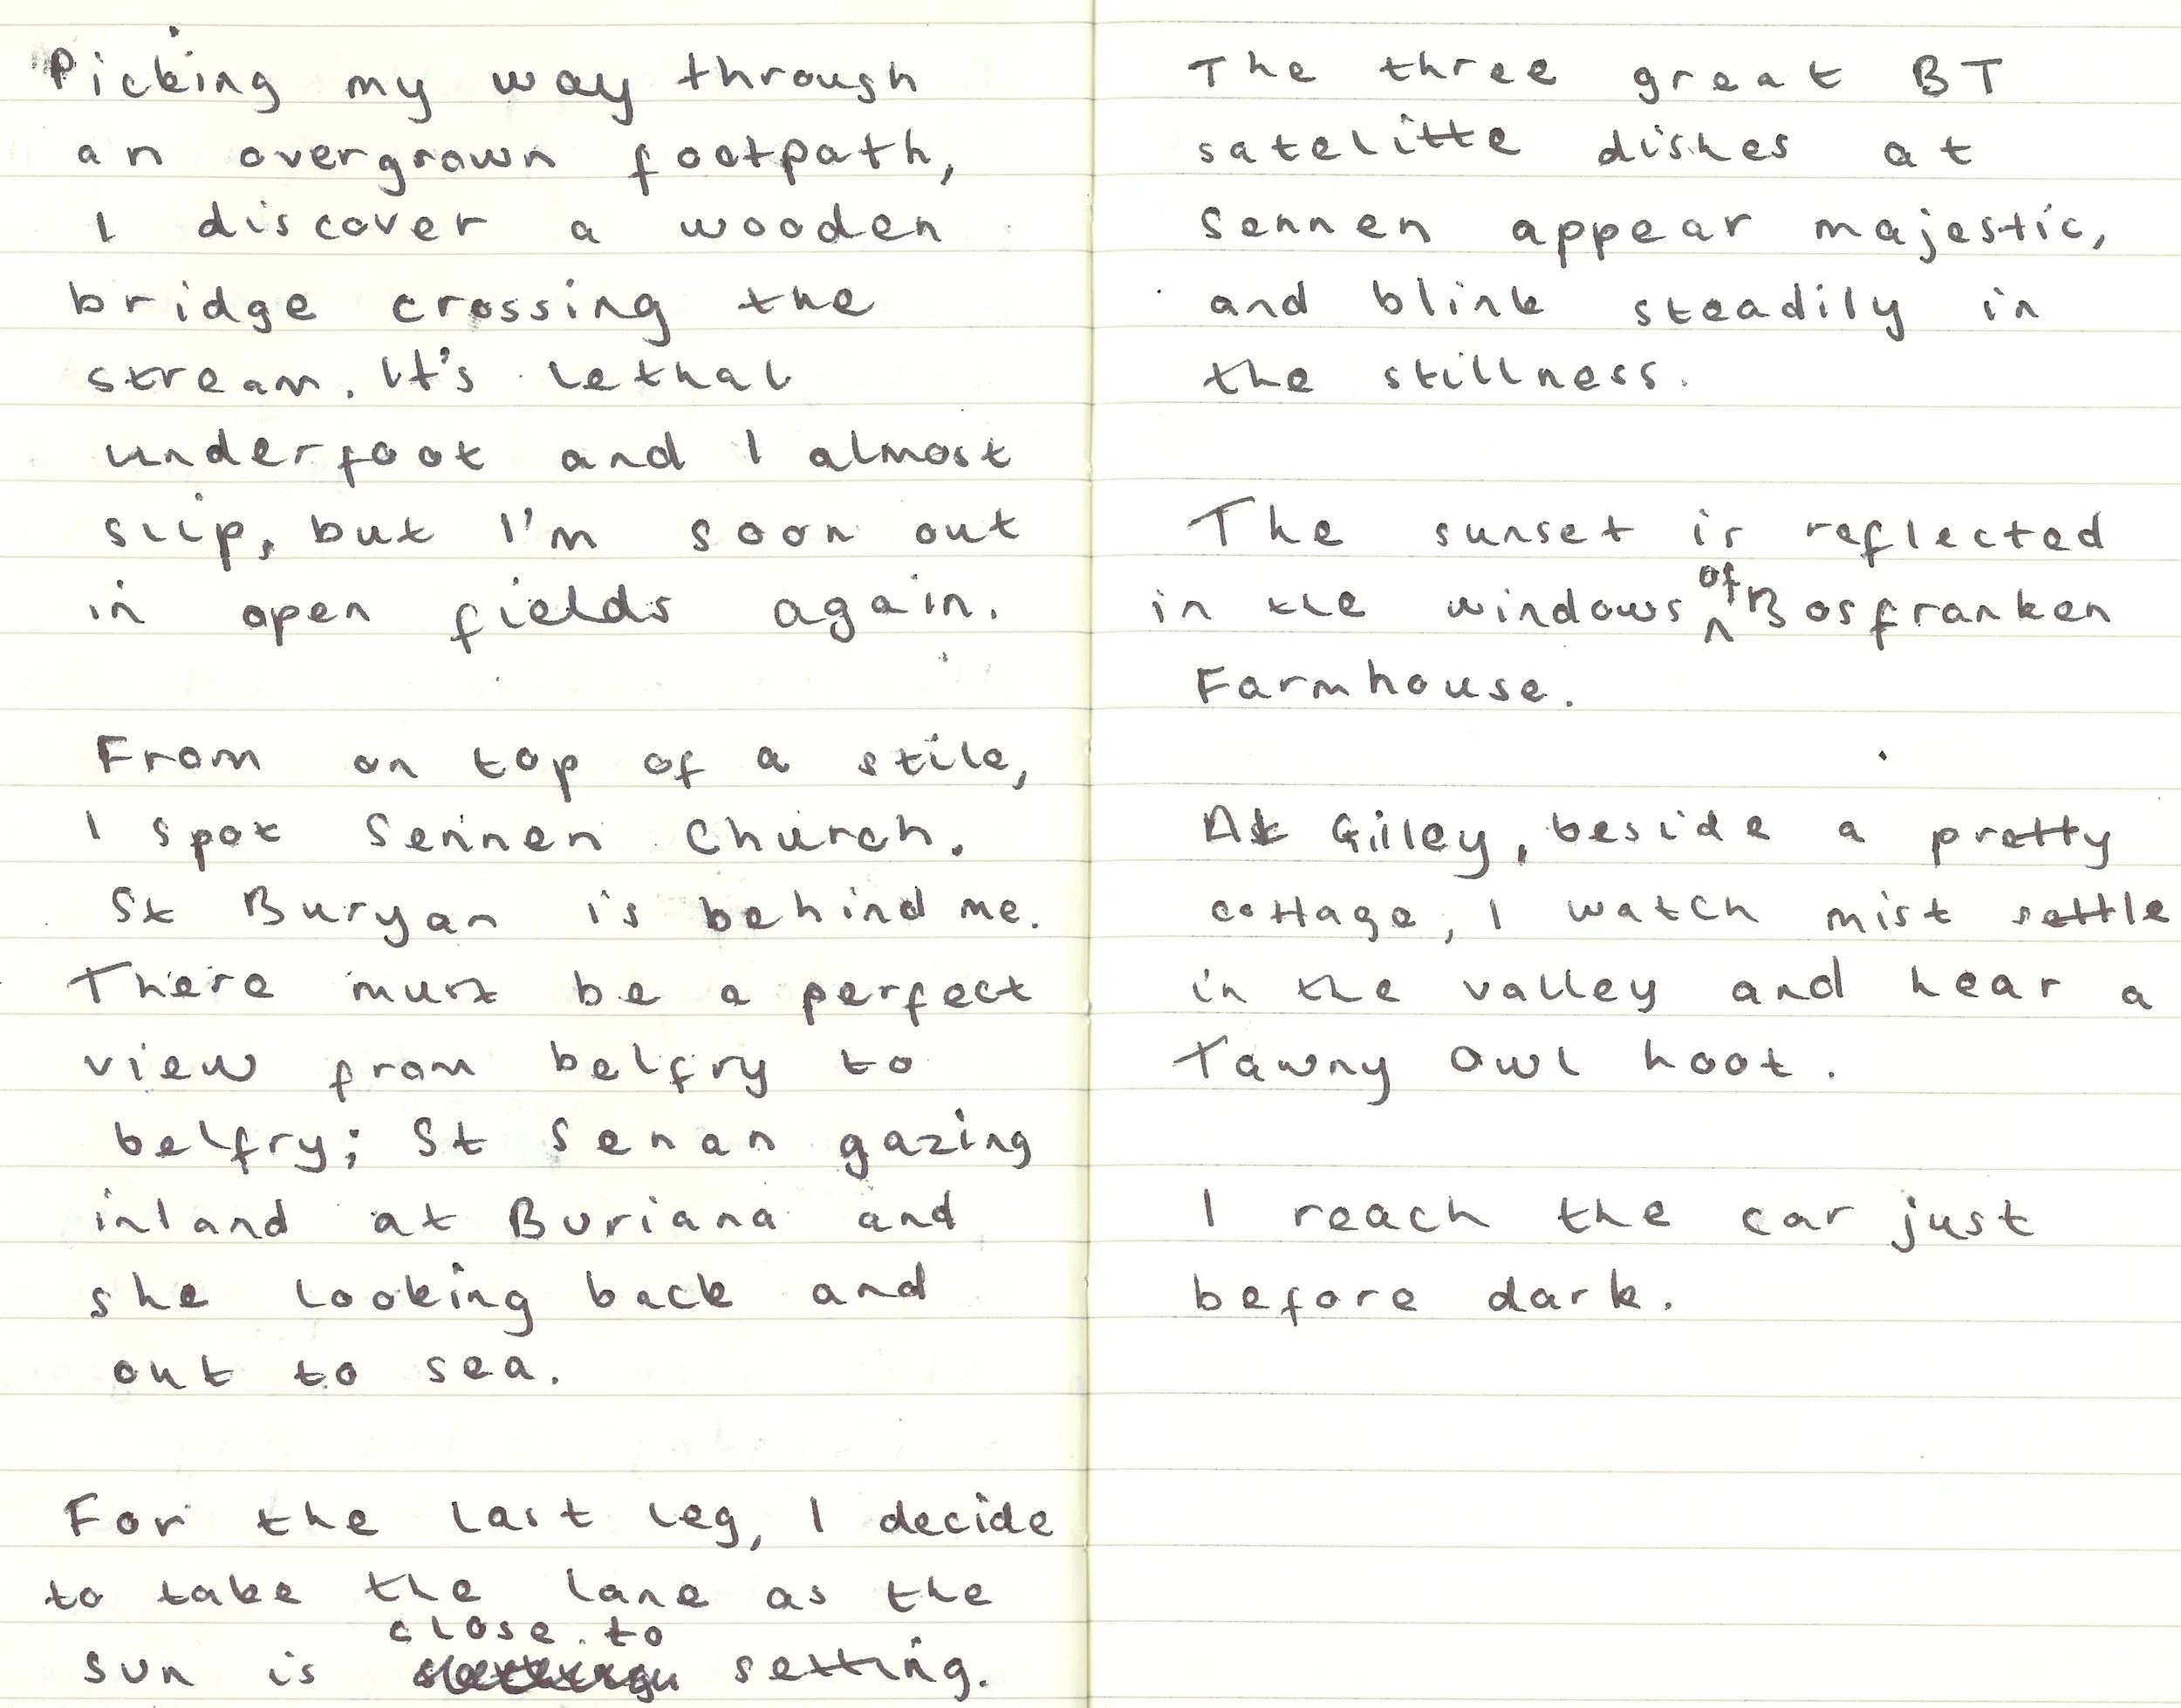 Picking my way through
an overgrown footpath,
I discover a wooden
bridge crossing the
stream. It's lethal
underfoot and I almost
slip, but I'm soon out
in open fields again.
From on top of a stile,
I spot Sennen Church.
St Buryan is behind me.
There must be a perfect
view from belfry to
belfry; St Senan gazing
inland at Buriana and
she looking back and
out to sea.
For the last leg, I decide
to take the lane as the
close to
sun is setting.
The three great BT
satelitte dishes at
Sennen appear majestic,
and blink steadily in
the stillness.
The sunset is reflected
of
in the windows ^ Bosfranken
Farmhouse.
At Gilley, beside a pretty
cottage, I watch mist settle
in the valley and hear a
Tawny Owl hoot.
I reach the car just
before dark.